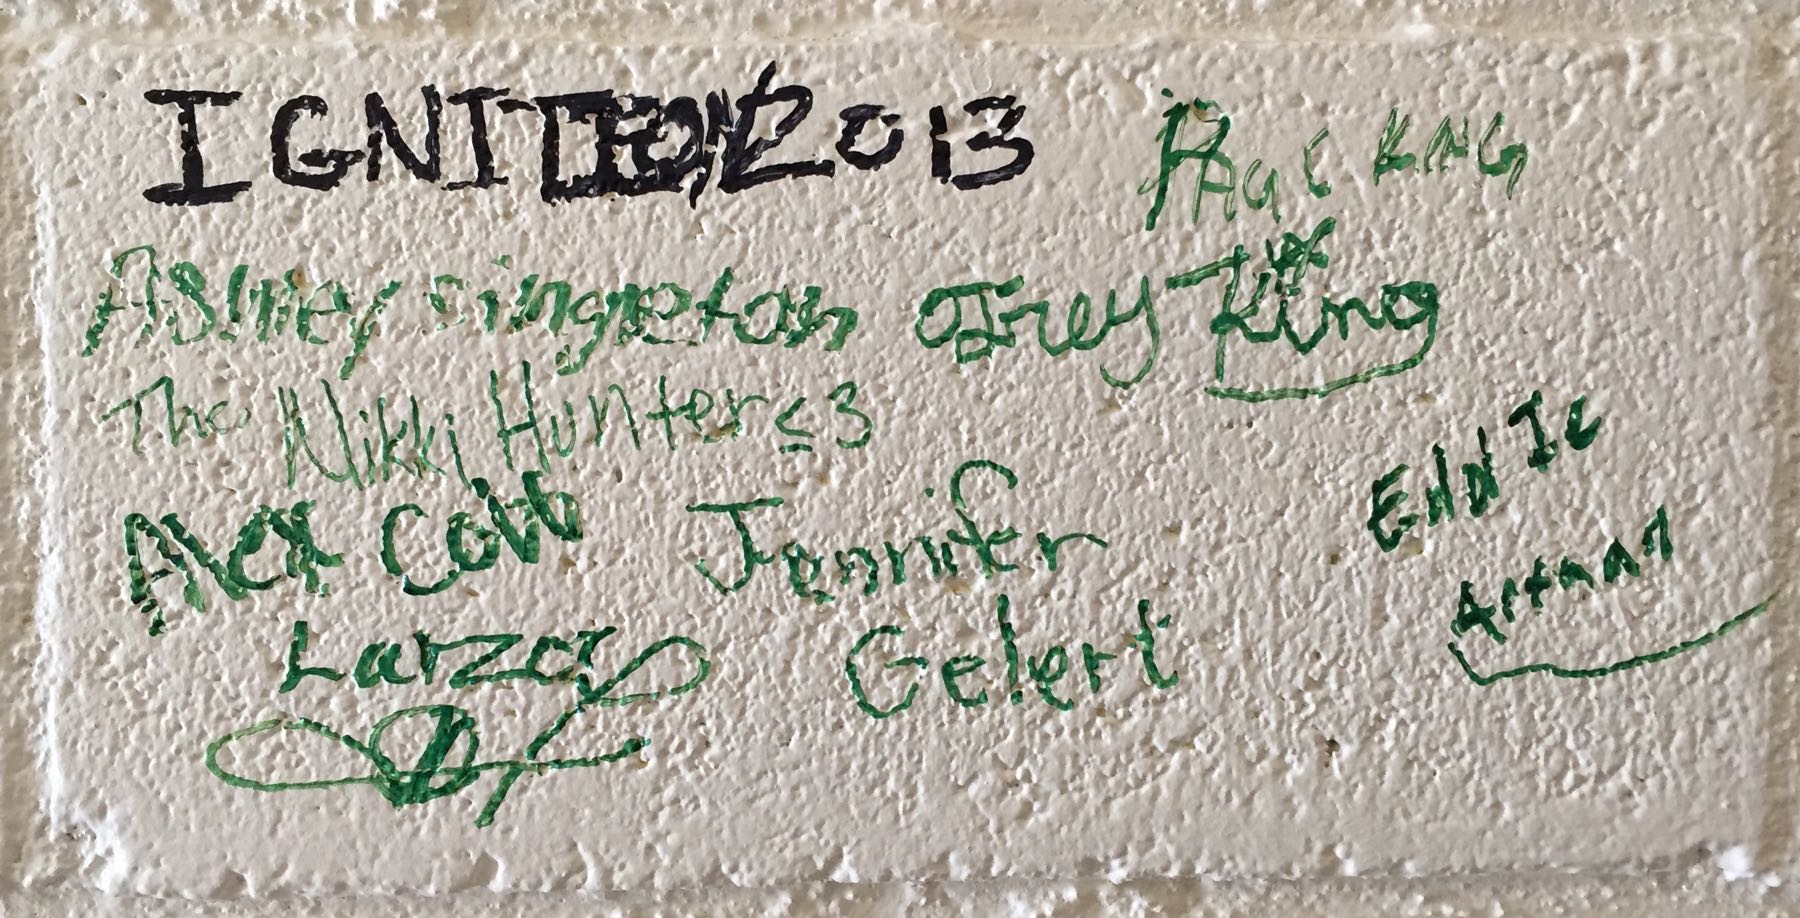 IGNITION 2013
Page King
Ashley Singleton
Trey King
The Nikki Hunter ≤3
Alex Cobb
Jennifer
Gelert
Eddie
Artman
Larzas